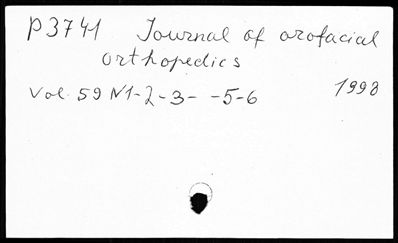 P3741 Journal of orofacial
orthopedics
Vol. 59 N1-2-3- -5-6 1998